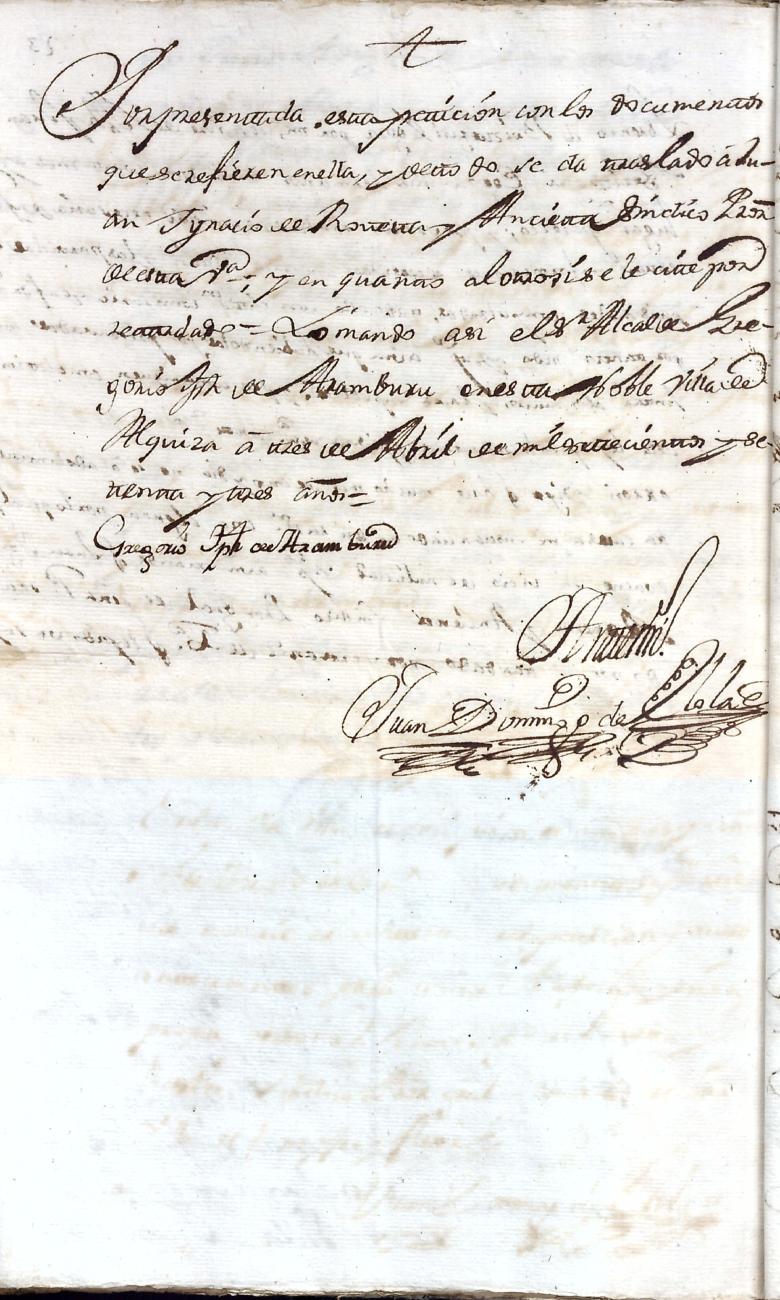 Por presentada esta petición con los documentos
que se refieren en ella, y de todo se da traslado a Ju-
an Ygnacio de Roteta y Ancieta Sindico Pror
de esta va, y en quanto al otrosi se le cite por
= Lo mando asi el Sr Alcalde Gre-
gorio Jph de Aramburu en esta Noble Villa de
Alquiza à tres de Abril de mil setecientos y se-
tenta y tres años =
Gregorio Jph de Aramburu
Ante mi
Juan Domingo de